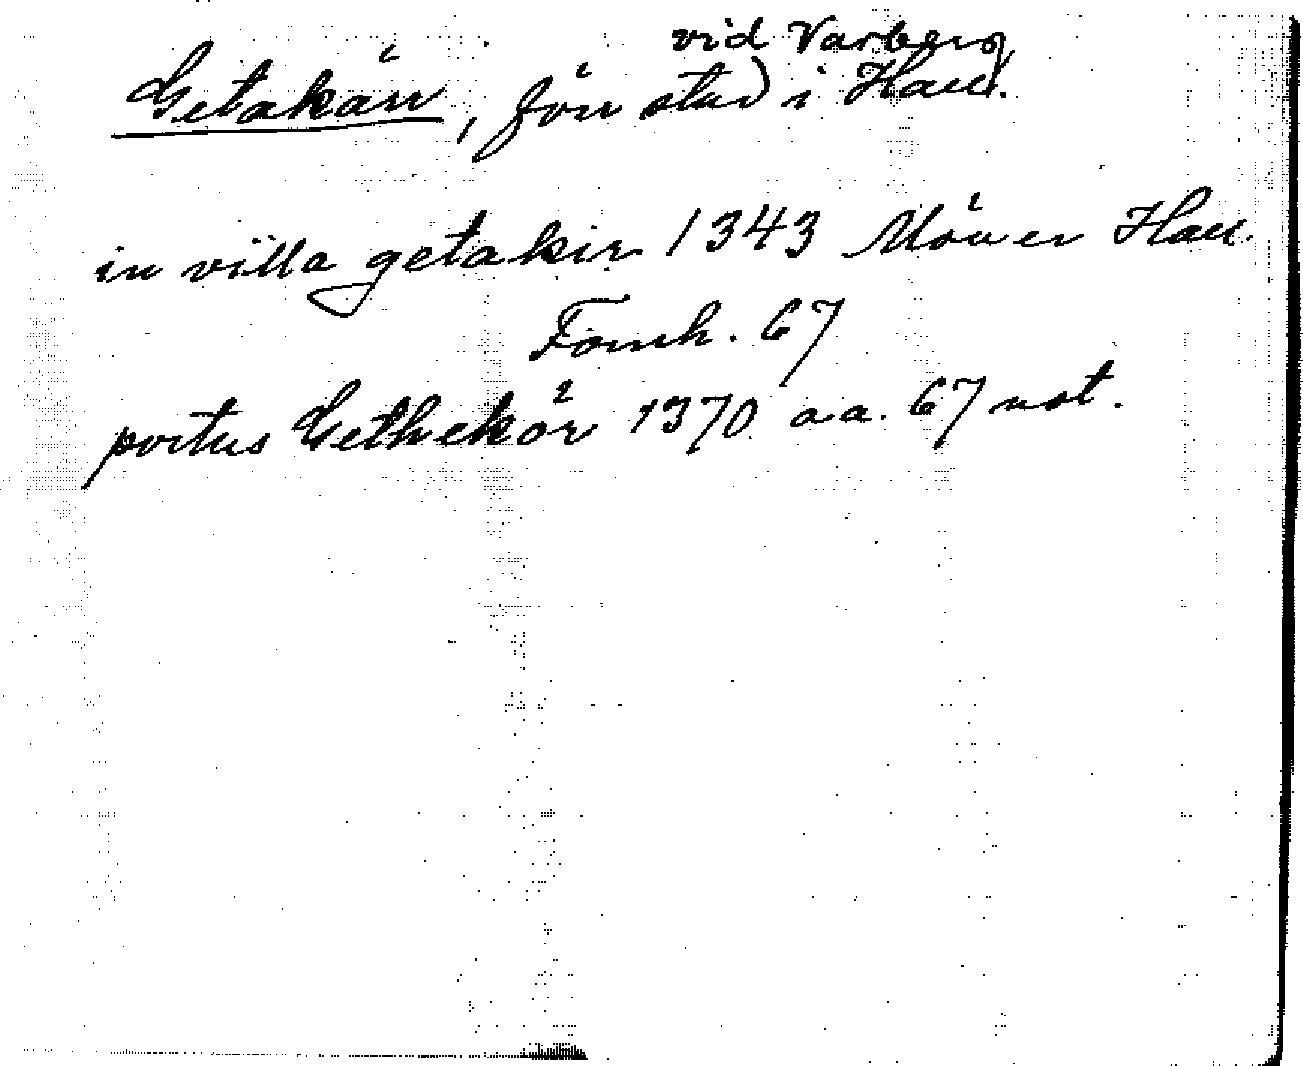 vid Varberg,
Getakärr, förr stad i Hall.
in villa getakir 1343 Möller Hall.
Fornh. 67
portus Gethekör 1370 a.a. 67 not.